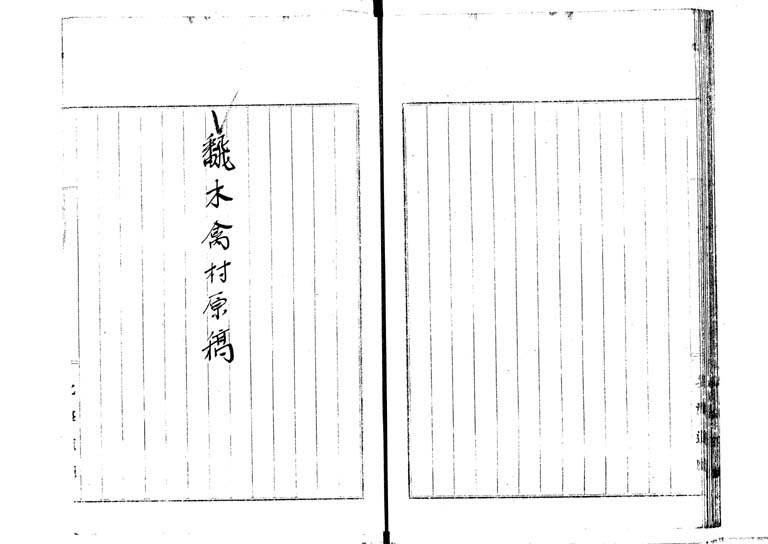 飜木禽村原稿